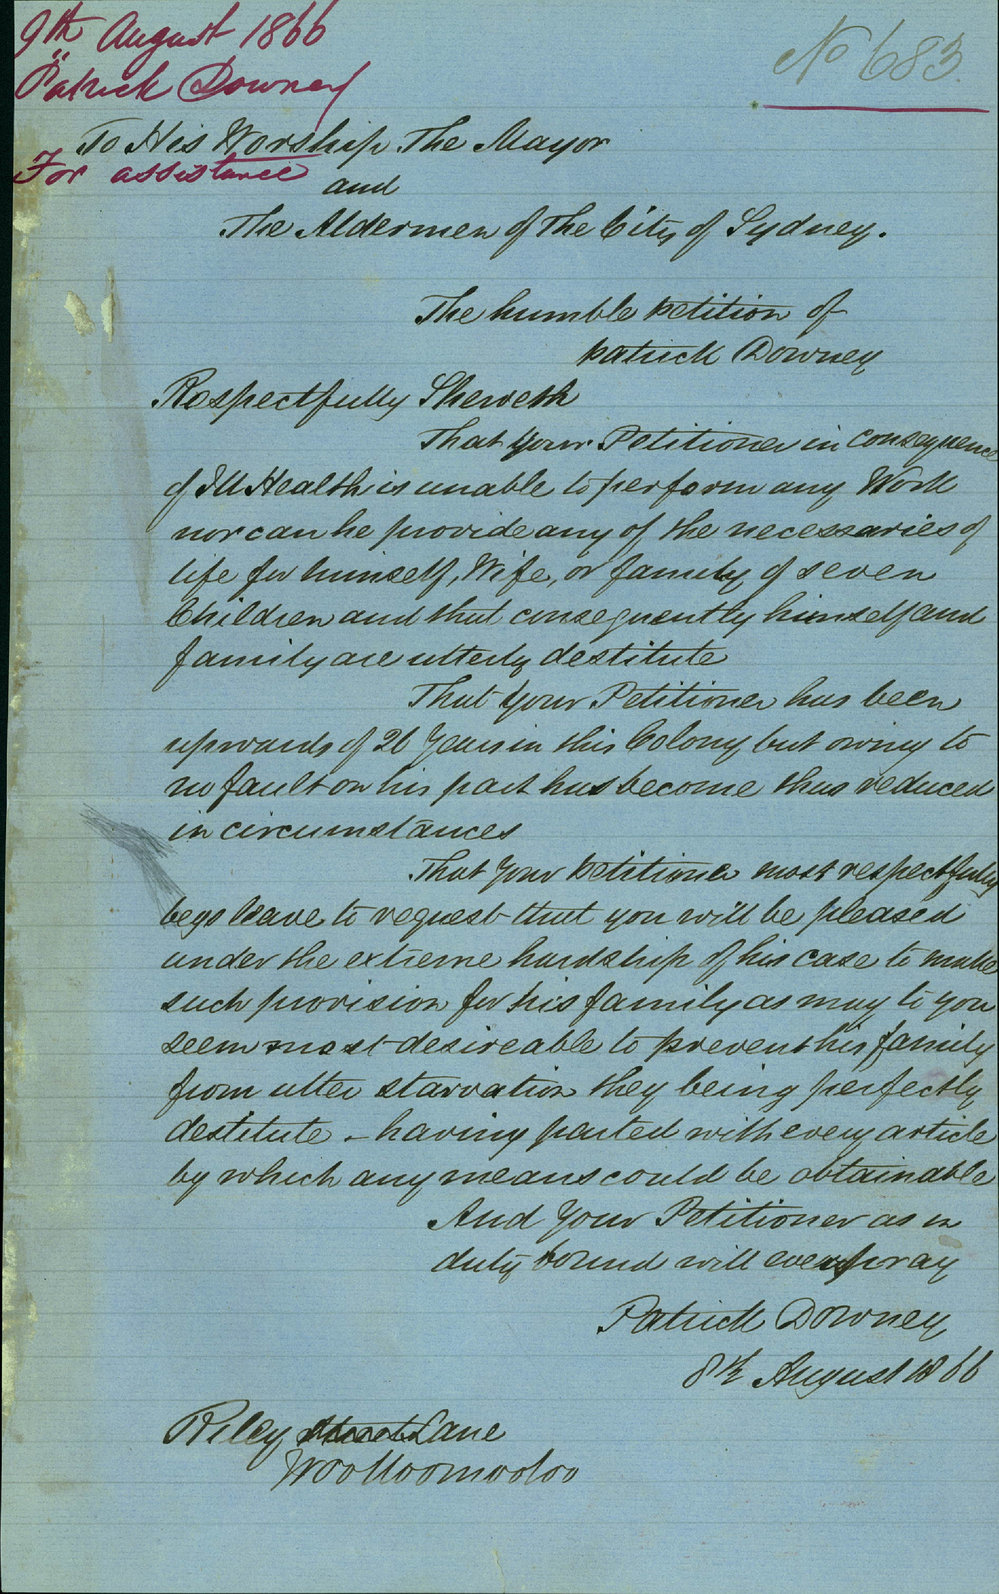 9th August 1866
Patrick Downey
For assistance
No 683.
To His Worship The Mayor
and
The Aldermen of The City of Sydney.
The humble petition of
Patrick Downey
Respectfully Sheweth
That Your Petitioner in consequence
of Ill Health is unable to perform any Work
nor can he provide any of the necessaries of
life for himself, Wife, or family of seven
Children and that consequently himself and
family are utterly destitute
That Your Petitioner has been
upwards of 26 Years in this Colony but owing to
no fault on his part has become thus reduced
in circumstances
That Your Petitioner most respectfully
begs leave to request that you will be pleased
under the extreme hardship of his case to make
such provision for his family as may to you
seem most desireable to prevent his family
from utter starvation they being perfectly
destitute - having parted with every article
by which any means could be obtainable
And Your Petitioner as in
duty bound will ever pray
Patrick Downey
8th August 1866
Riley Street Lane
Woolloomooloo